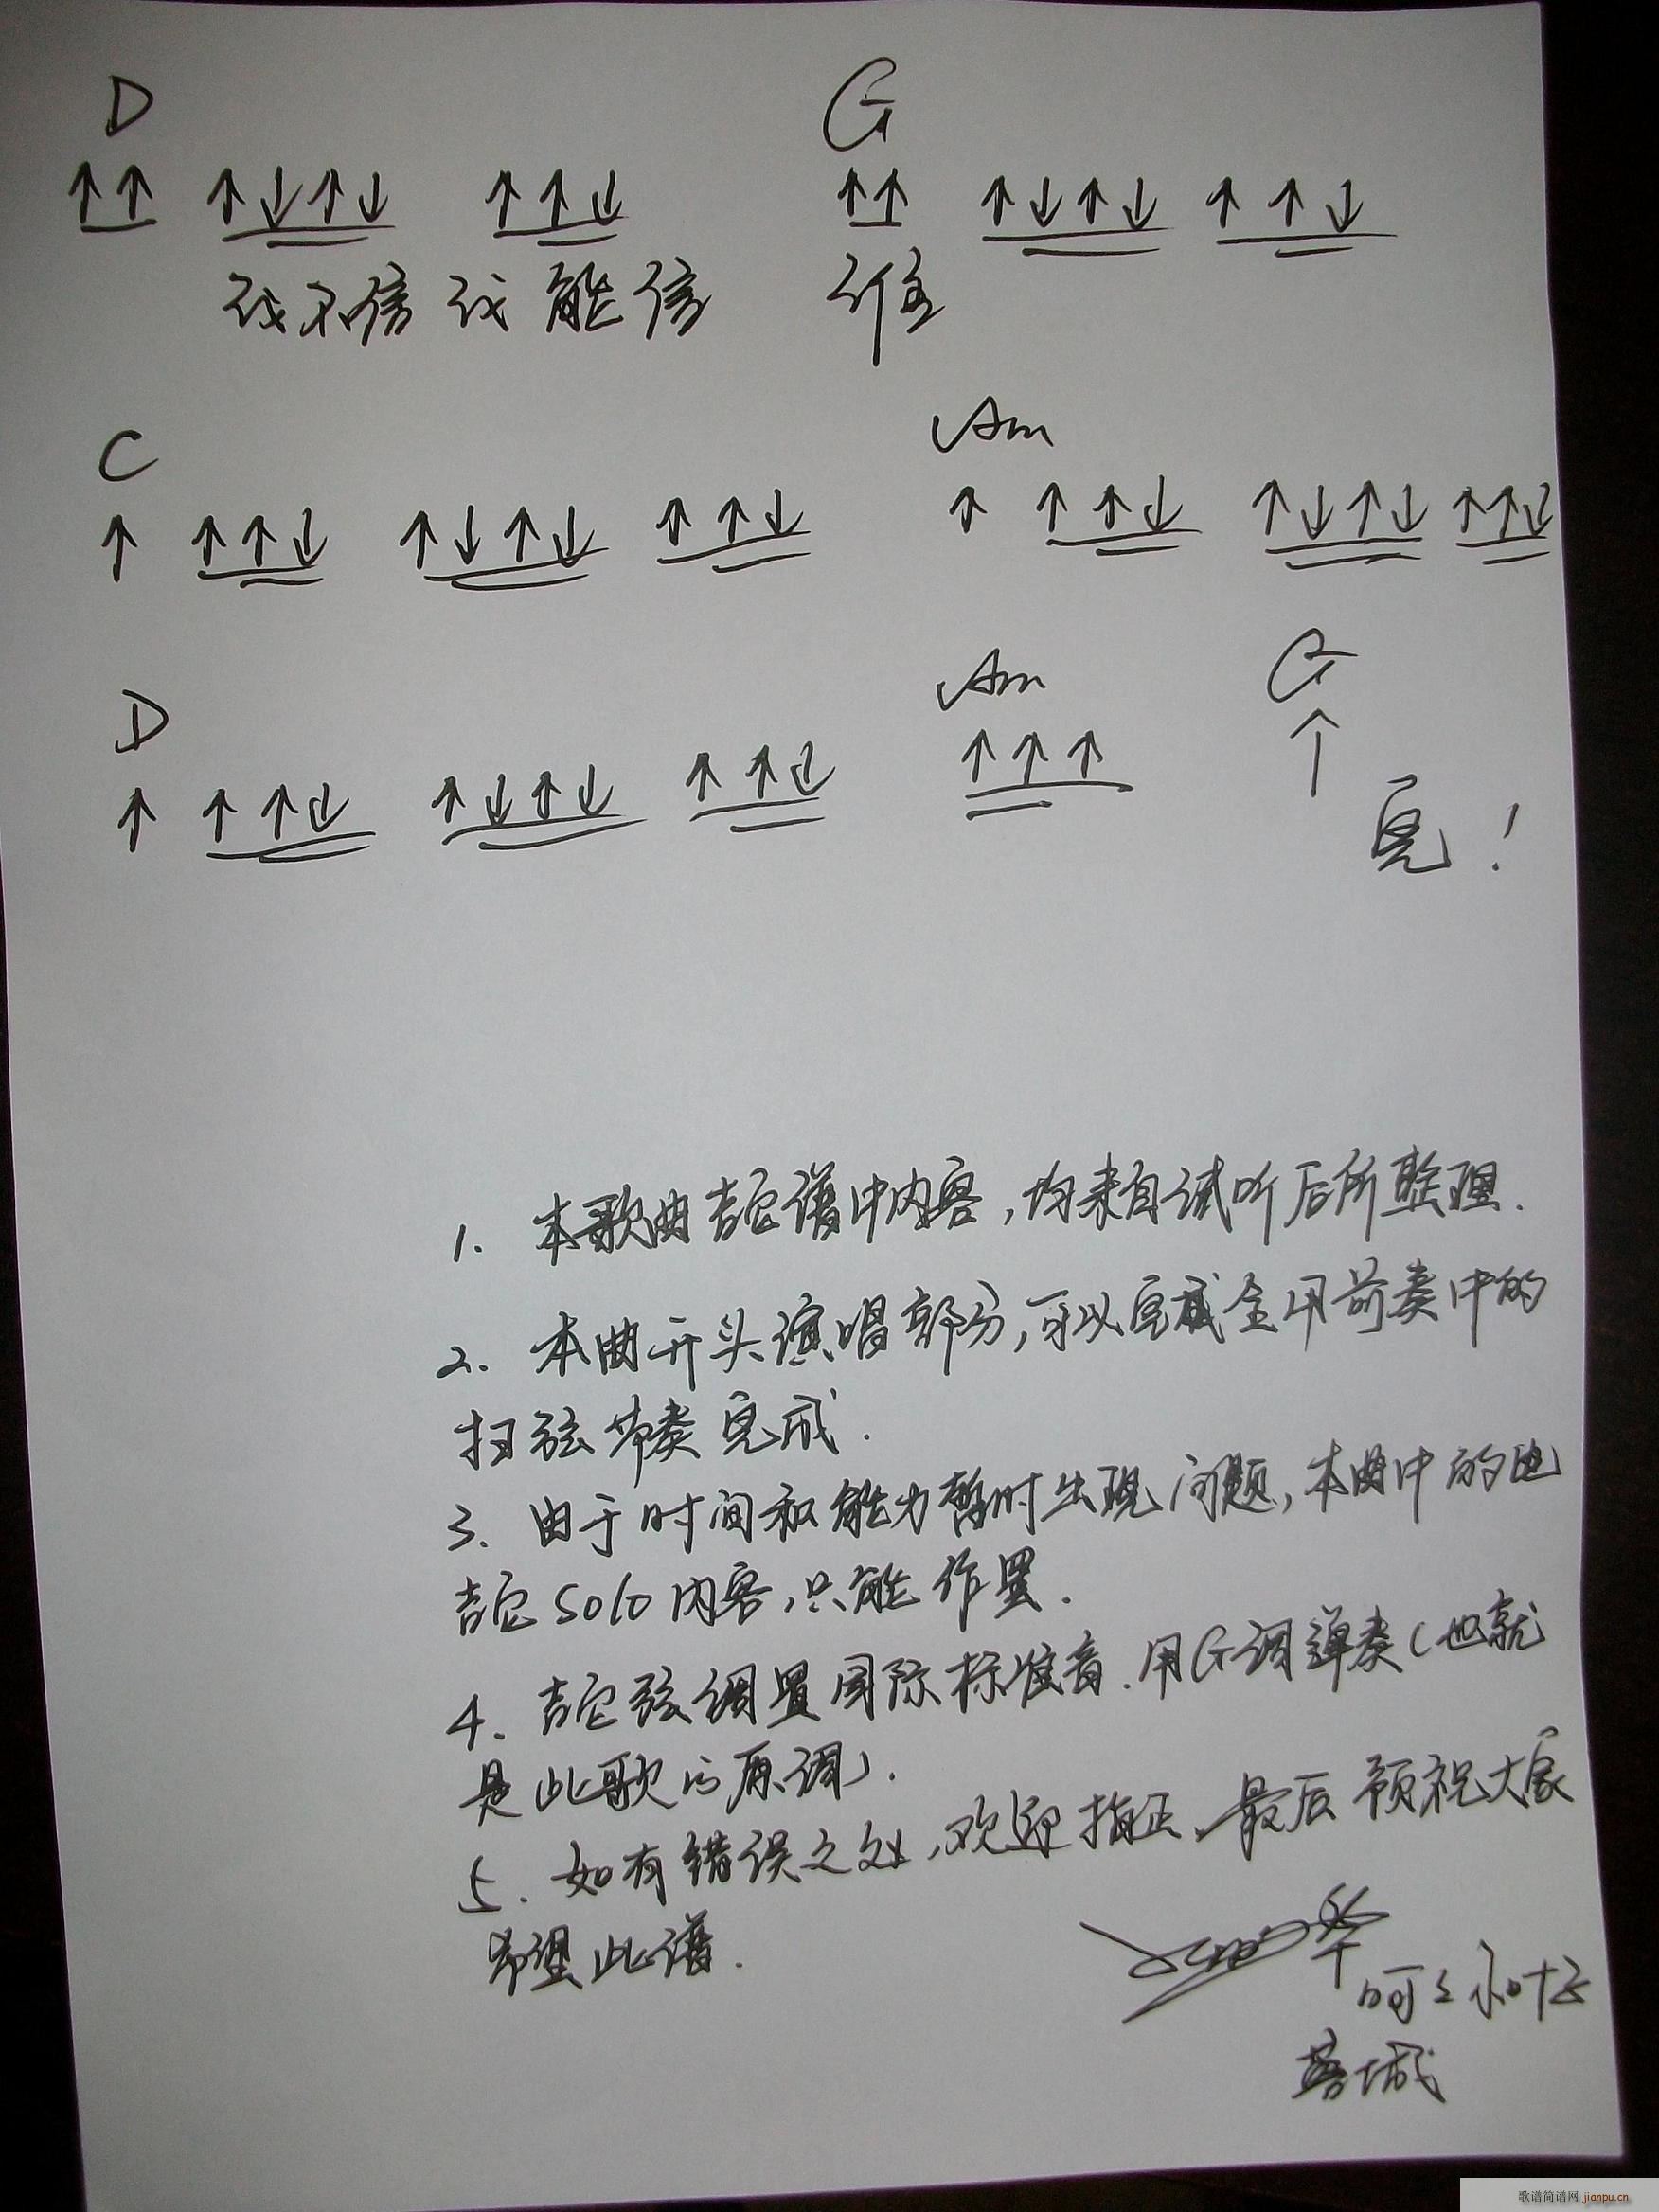 D G
↑↑ ↑↓↑↓ ↑↑↓ ↑↑ ↑↓↑↓ ↑↑↓
我不信 我能信 谁
C Am
↑ ↑↑↓ ↑↓↑↓ ↑↑↓ ↑ ↑↑↓ ↑↓↑↓ ↑↑↓
D Am G
↑ ↑↑↓ ↑↓↑↓ ↑↑↓ ↑↑↑ ↑
完!
1. 本歌曲吉它谱中内容,均来自试听后所整理.
2. 本曲开头演唱部分,可以完全用前奏中的
扫弦节奏完成.
3. 由于时间和能力暂时出现问题,本曲中的电
吉它solo内容,只能作置.
4. 吉它弦调置国际标准音.用G调弹奏(也就
是此歌的原调).
5. 如有错误之处,欢迎指正,最后预祝大家
希望此谱.
华
蓉城
歌谱简谱网 jianpu.cn